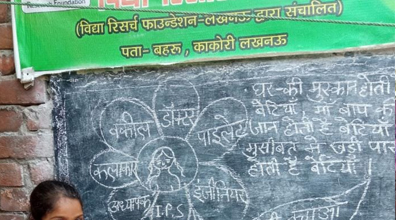 Foundation
(विद्या रिसर्च फाउन्डेशन-लखनऊ द्वारा संचालित)
पता- बहरू, काकोरी लखनऊ
घर की मुस्कान होती
बेटियाँ माँ बाप की
जान होती है बेटियाँ
मुसीबत में खड़ी पास
होती है बेटियाँ!
डॉक्टर
वकील
पाइलेट
कलाकार
इंजीनियर
अध्यापक
I.P.S